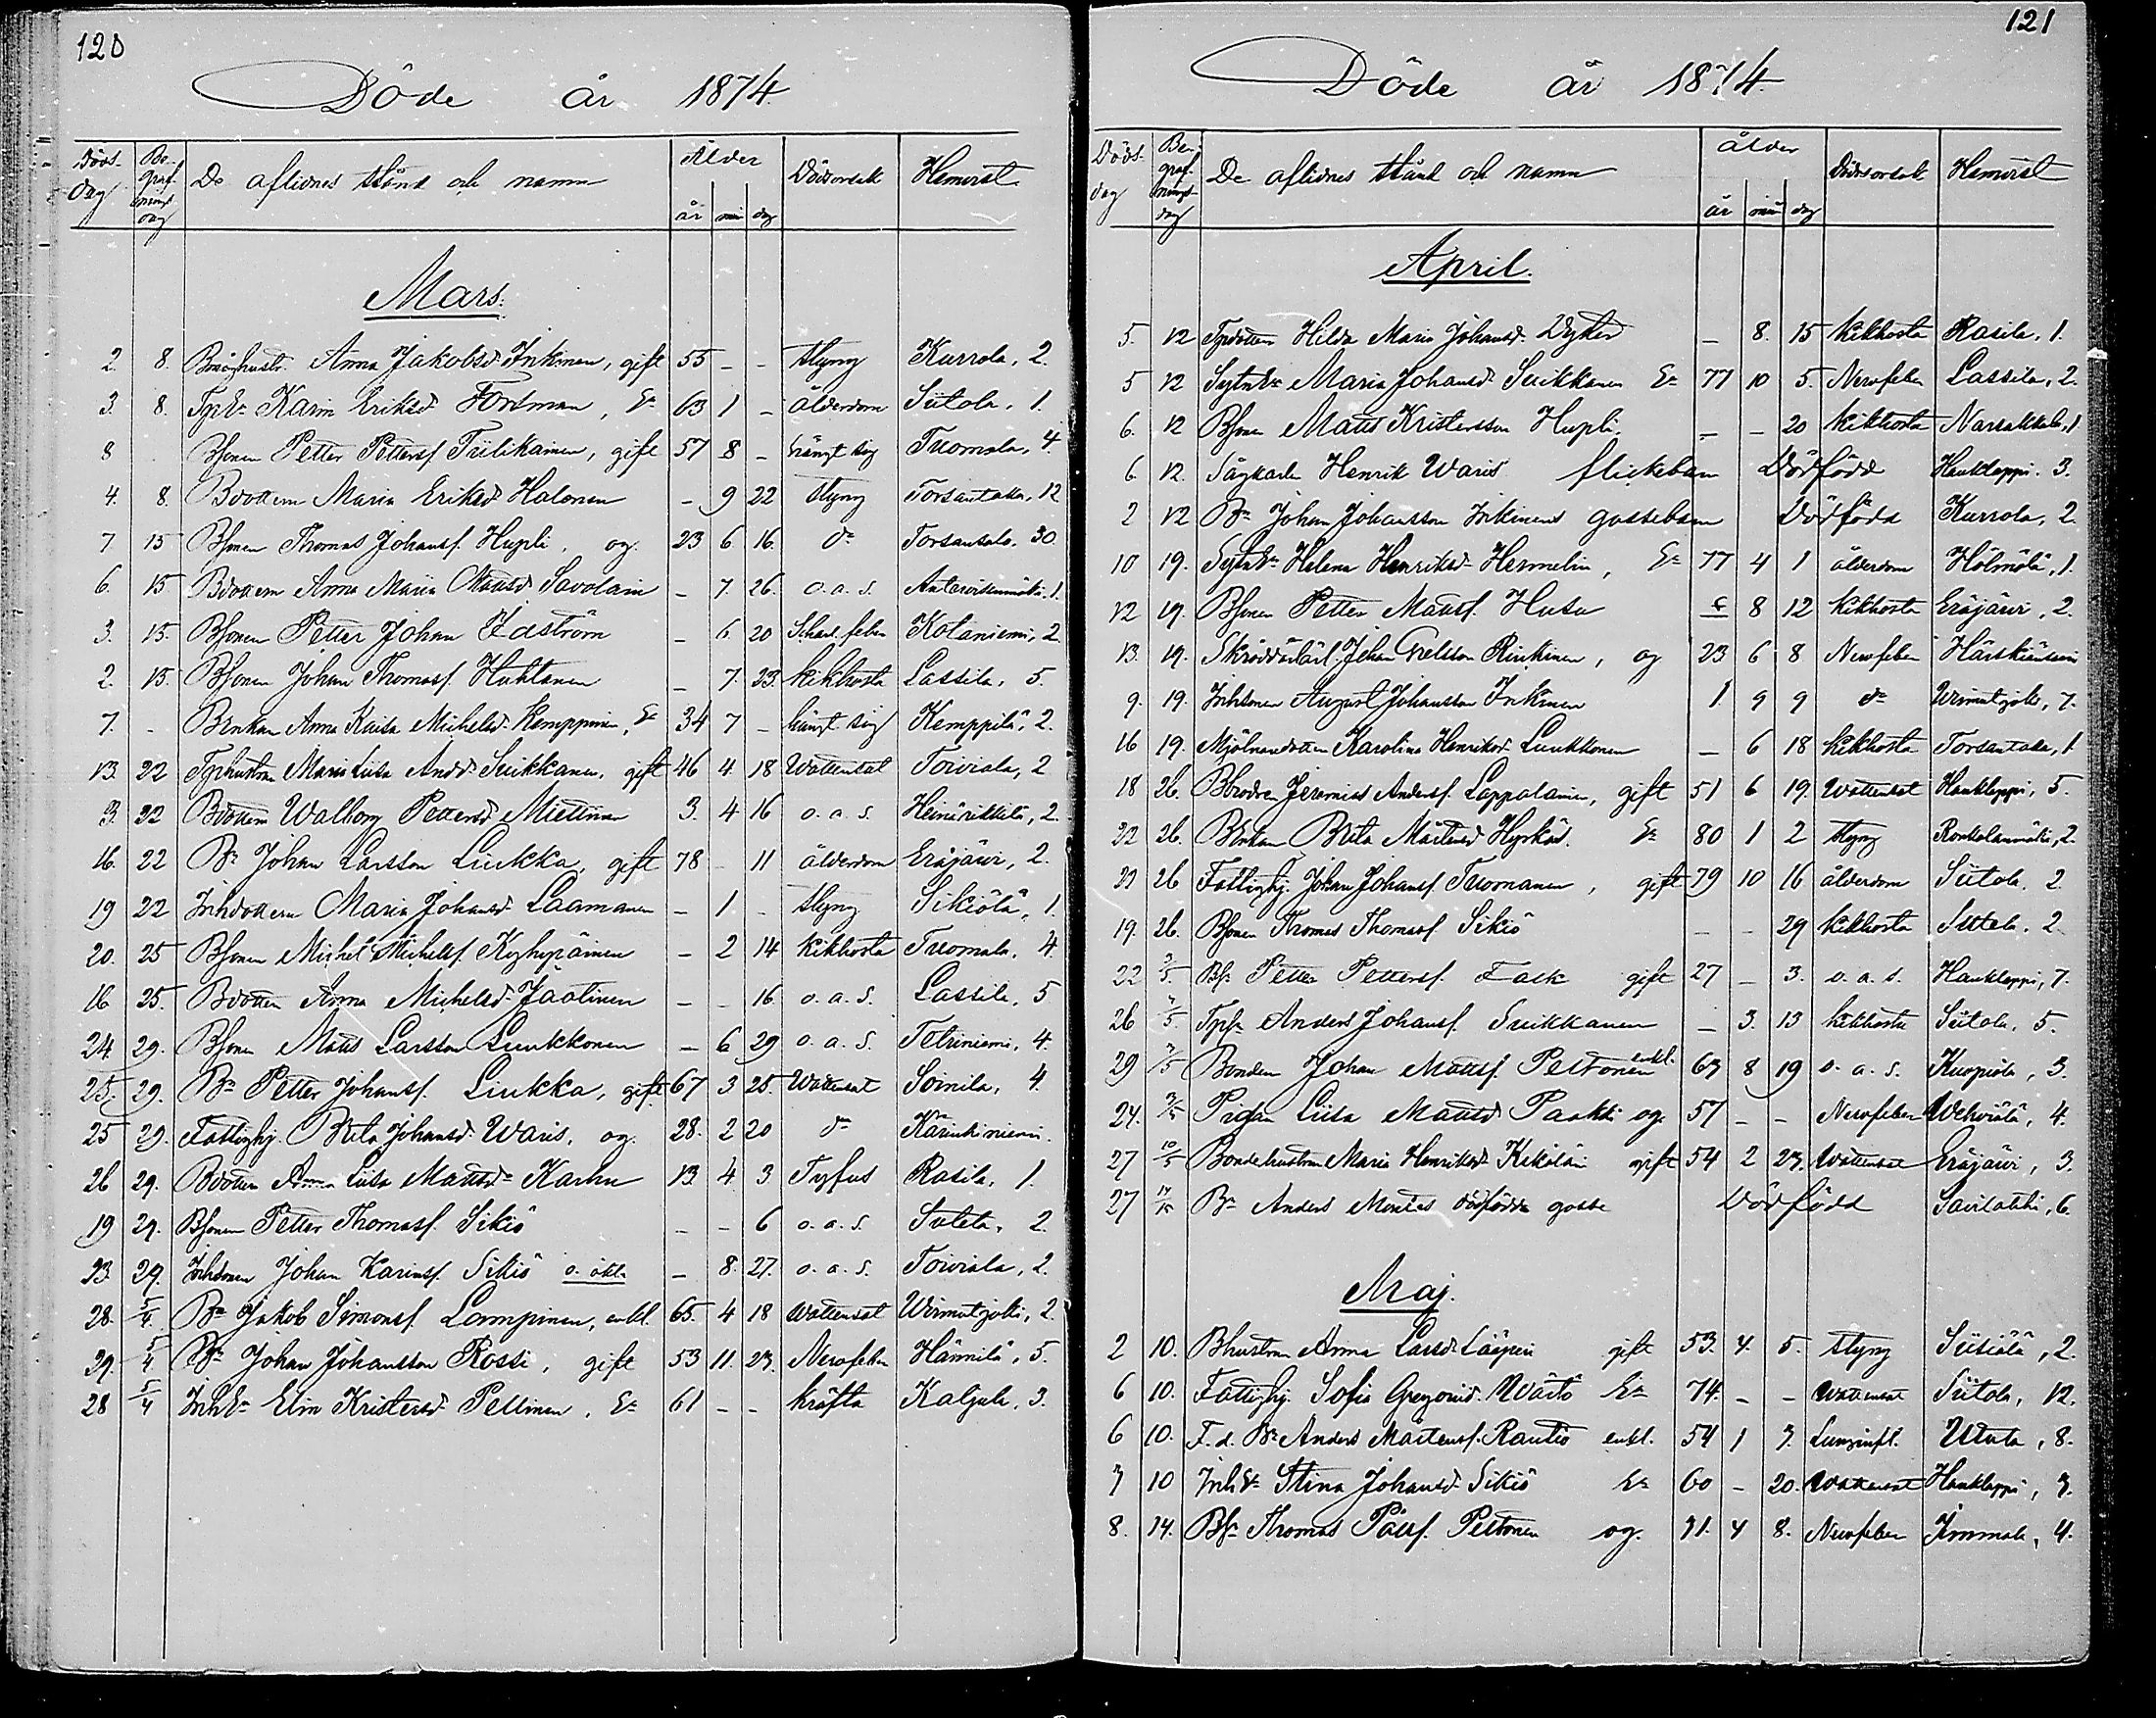 120
Döde år 1874.
Dödsdag Begrafningsdag De aflidnes stånd och namn Ålder år mån dag Dödsorsak Hemvist
Mars.
2. 8. Anna Jakobsd. Inkinen, gift 55 - - Styng Kurrola, 2.
3. 8. Karin Eriksd. Forsman, Ea 63 1 - ålderdom Siitola, 1.
8 Bsonen Petter Pettersf. Tiilikainen, gift 57 8 - hängt sig Tuomala, 4.
4. 8. Bdottern Maria Eriksd. Halonen - 9 22 Styng Torsantaka, 12
7 15 Bsonen Thomas Johansf. Hupli, og. 23 6 16. do Torsansalo. 30
6. 15. Bdottern Anna Maria Mattsd. Savolain - 7. 26. o.a.s.
3. 15. Bsonen Petter Johan Idström - 6 20 Scharl. feber Kotaniemi, 2.
2. 15. Bsonen Johan Thomasf. Huhtanen - 7. 23. kikhosta Lassila, 5.
7. - Benkan Anna Kaisa Michelsd. Kemppinen, Ea 34 7 - hängt sig Kemppilä, 2.
13. 22 Tphustrun Maria Liisa Andsd. Suikkanen, gift 46 4 18 Wattensot Toiviala, 2
3. 22 Bdottern Walborg Pettersd. Miettinen 3. 4 16 o.a.s. Heinärikkilä, 2.
16. 22 Bn Johan Larsson Liukka, gift 78 - 11 ålderdom Eräjärvi, 2.
19 22 Inhdottern Maria Johansd. Laamanen - 1 - Styng Sikiölä, 1.
20. 25 Bsonen Michel Michelsf. Kyhypäinen - 2 14 kikhosta Tuomala, 4.
16 25. Bdottern Anna Michelsd. Jäätinen - - 16. o.a.s. Lassila, 5
24. 29. Bsonen Matts Larsson Luukkonen - 6 29 o.a.s. Tetriniemi, 4.
25. 29. Bn Petter Johansf. Liukka, gift 67 3 25. Wattensot Soinila, 4.
25 29. Fattighj. Brita Johansd. Waris, og. 28. 2 20 do Kärinkiniemi.
26 29. Bdottern Anna Liisa Mattsd. Karhu 13 4. 3 Tyfus Rasila, 1.
19 29. Bsonen Petter Thomasf. Sikiö - - 6 o.a.s. 2.
23. 29. Inhsonen Johan Karinsf. Sikiö o. äkta - 8. 27. o.a.s. Toiviala, 2.
28. 5/4. Bn Jakob Simonsf. Lampinen, enkl. 65. 4 18 Wattensot Wirmutjoki, 2.
29. 5/4 Bn Johan Johansson Rossi, gift 53 11. 23. Nervfeber Hännilä, 5.
28 5/4 InhEa Elin Kristersd. Peltinen, Ea 61 - - kräfta Kaljula, 3.
121
Döde år 1874.
Dödsdag Begrafningsdag De aflidnes stånd och namn ålder år mån dag Dödsorsak Hemvist
April.
5. 12 Tpdottern Hilda Maria Johansd. Dyster - 8. 15 kikhosta Rasila, 1.
5 12 Maria Johansd. Suikkanen Ea 77 10 5. Nervfeber Lassila, 2.
6. 12 Bsonen Matts Kristersson Hupli - - 20 kikhosta Narsakkala, 1
6. 12. Sågkarln Henrik Waris flickebarn Dödfödd Haukleppi. 3.
2 12 Bn Johan Johansson Inkinens gossebarn Dödfödd Kurrola, 2.
10 19. Helena Henriksd. Hermelin, Ea 77 4 1 ålderdom Hölmölä, 1.
12 19. Bsonen Petter Mattsf. Husu 8 12 kikhosta Eräjärvi, 2.
13. 19. Skräddarlärl. Johan Carlsson Rinkinen, og 23 6 8 Nervfeber
9. 19. Inhsonen August Johansson Inkinen 1. 9 9 do Wirmutjoki, 7.
16 19. Mjölnaredottern Karolina Henriksd. Luukkonen - 6 18 kikhosta Torsantaka, 1
18 26. Bbrodren Jeremias Andersf. Lappalainen, gift 51 6 19. Wattensot Haukleppi, 5.
22 26. Benkan Brita Mårtensd. Hyrkäs. Ea 80 1 2 Styng 2.
22 26 Fattighj. Johan Johansf. Tuomanen, gift 79 10 16 ålderdom Siitola, 2
19. 26. Bsonen Thomas Thomasf. Sikiö - - 29 kikhosta 2.
22 3/5. Bf. Petter Pettersf. Fack gift 27 - 3. o.a.s. Haukleppi, 7.
26 3/5. Anders Johansf. Suikkanen - 3. 13 kikhosta Siitola, 5.
29 3/5 Bonden Johan Mattsf. Peltonen enkl. 63 8 19 o.a.s. Kuopiola, 3.
24. 3/5 Pigan Liisa Mattsd. Paakki og. 57 - - Nervfeber Wehviälä, 4.
27 10/5 Bondehustrun Maria Henriksd. Kikoläin gift 54 2 23. Wattensot Eräjärvi, 3.
27 14/5 Bn Anders Montas dödfödda gosse Dödfödd Savilahti, 6.
Maj.
2 10. Bhustrun Anna Larsd. Lääperi gift 53. 4. 5. Styng Siisiälä, 2.
6 10. Fattighj. Sofia Gregorisd. Wäätö Ea 74. - - Wattensot Siitola, 12.
6 10. F.d. Bn Anders Mårtensf. Rautio enkl. 54 1 3. Lunginfl. Utula, 8.
3 10 InhEa Stina Johansd. Sikiö Ea 60 - 20. Wattensot Haukleppi, 3.
8. 14. Bfn Thomas Pålsf. Peltonen og. 31. 4 8. Nervfeber Immala, 4.